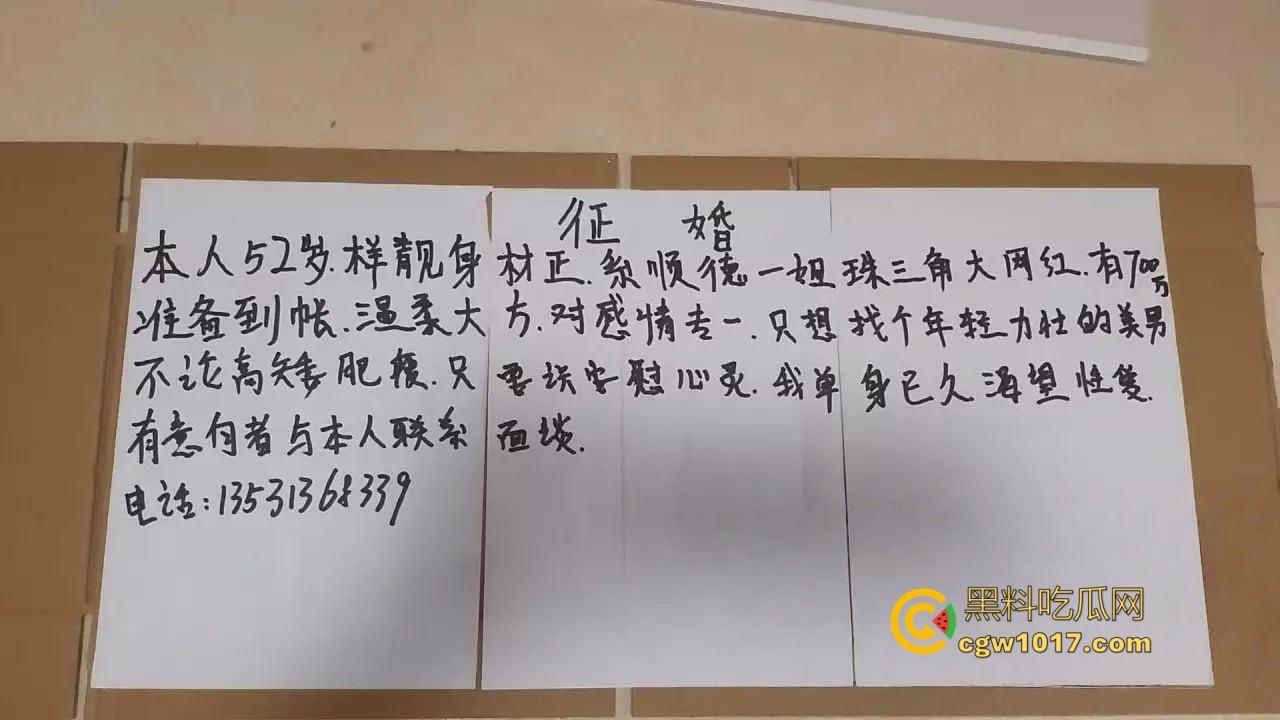 征 婚
本人52岁.样靓身材正.系顺德一姐珠三角大网红.有700万
准备到帐.温柔大方.对感情专一.只想找个年轻力壮的美男
不论高矮肥瘦.只要谈安慰心灵.我单身已久渴望性爱.
有意向者与本人联系面谈.
电话:13531368339
黑料吃瓜网
cgw1017.com